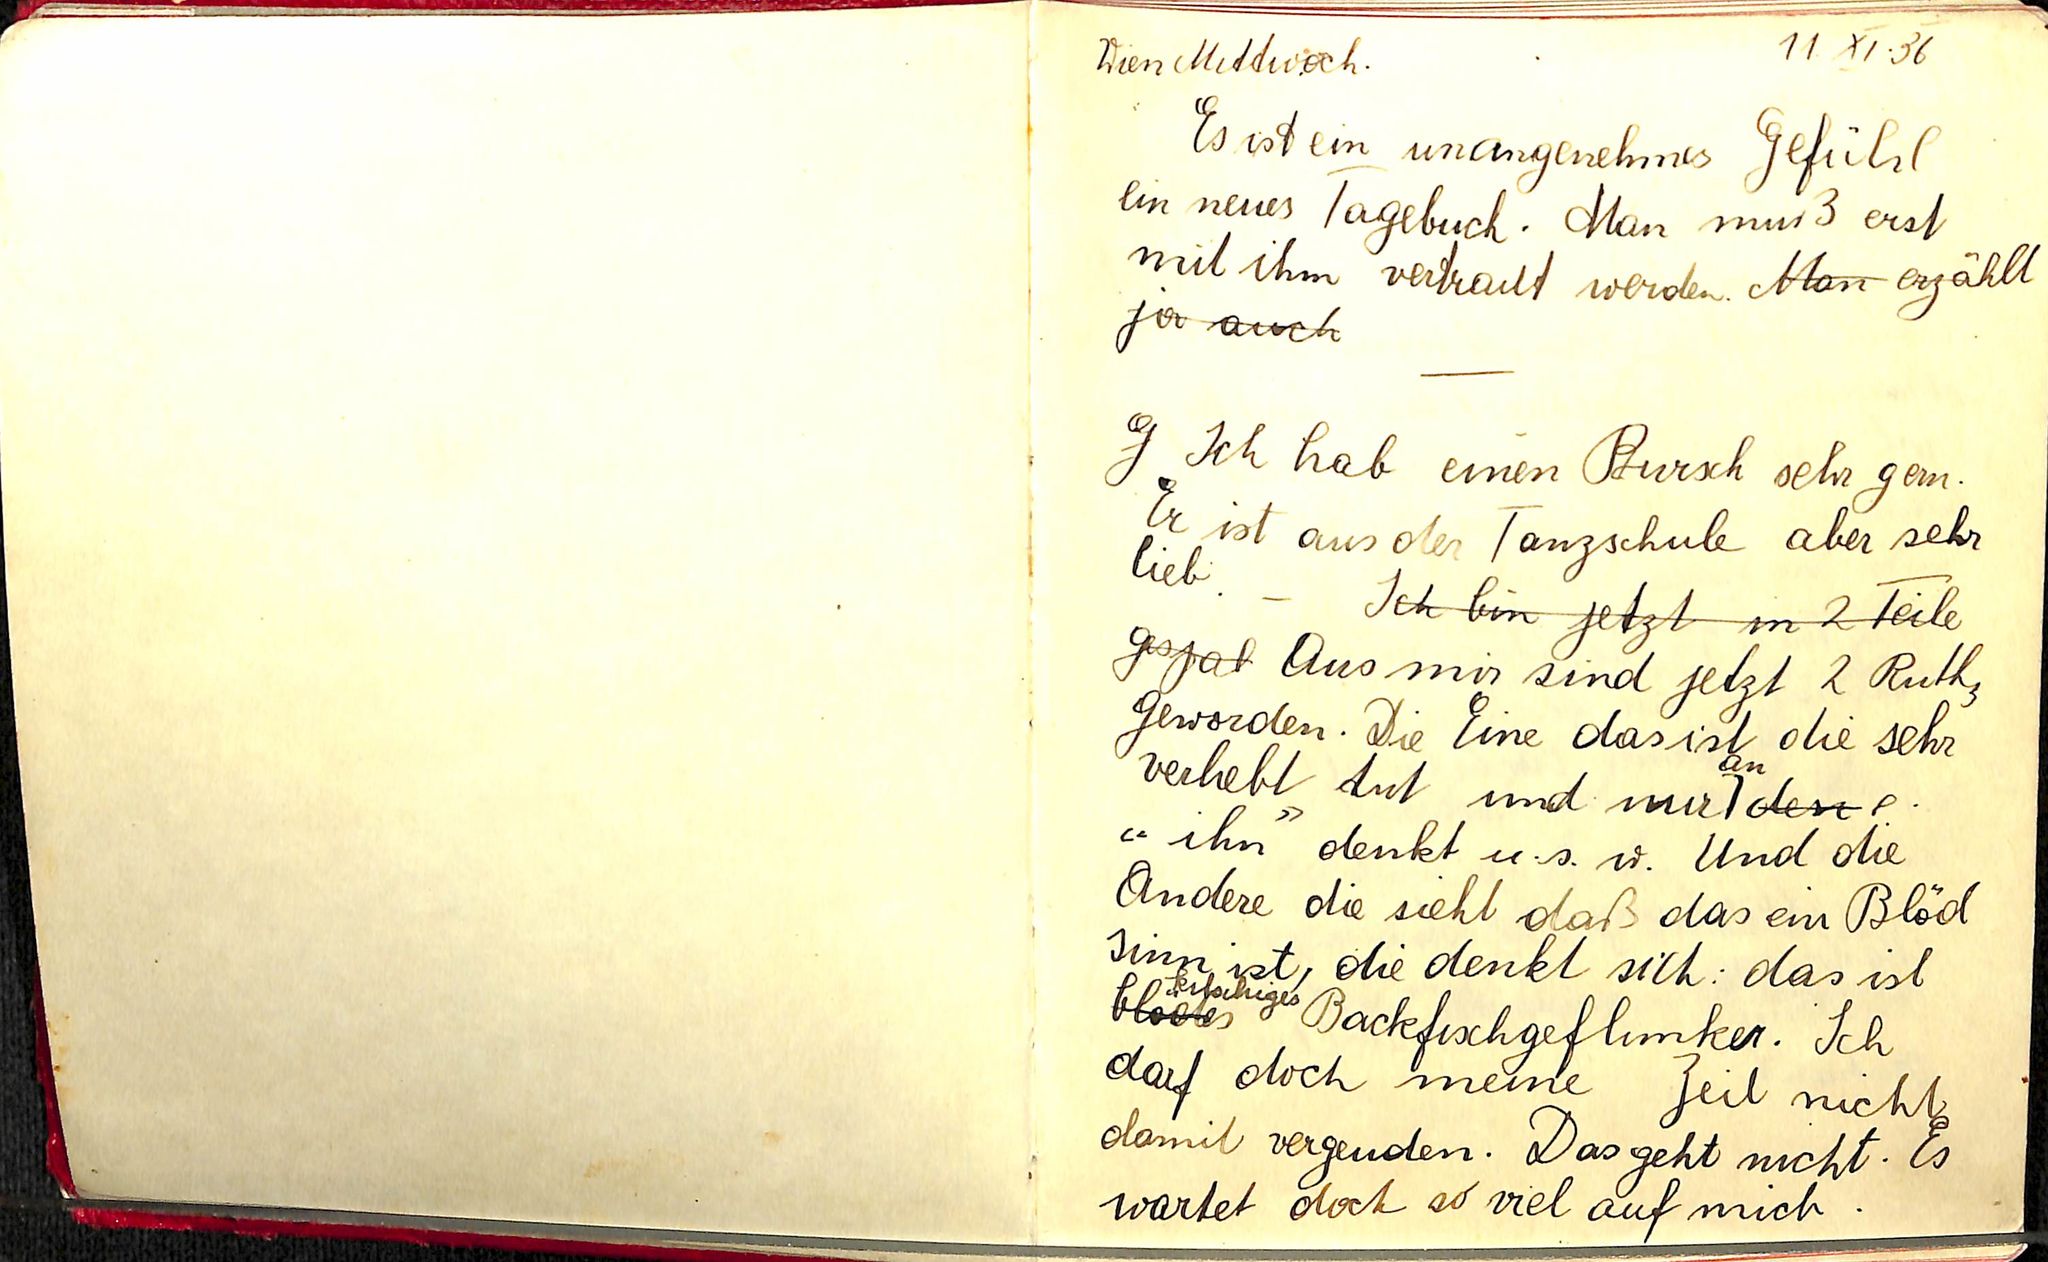 Wien Mittwoch. 11. XI. 36
Es ist ein unangenehmes Gefühl
ein neues Tagebuch. Man muß erst
mit ihm vertraut werden. Man erzählt
ja auch
G Ich hab einen Bursch sehr gern.
Er ist aus der Tanzschule aber sehr
lieb. – Ich bin jetzt in 2 Teile
gespal Aus mir sind jetzt 2 Ruth
geworden. Die Eine das ist die sehr
verliebt tut und nur an den
"ihn" denkt u.s.w. Und die
Andere die sieht daß das ein Blöd
sinn ist, die denkt sich: das ist
blödes Backfischgeflunker. Ich
darf doch meine Zeit nicht
damit vergeuden. Das geht nicht. Es
wartet doch so viel auf mich.